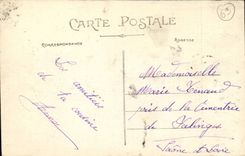 CARTE POSTALE
CORRESPONDANCE
ADRESSE
Les amitiés
de la cousine
Mademoiselle
Marie Renaud
près de la Cimenterie
de Palinges
Saône et Loire